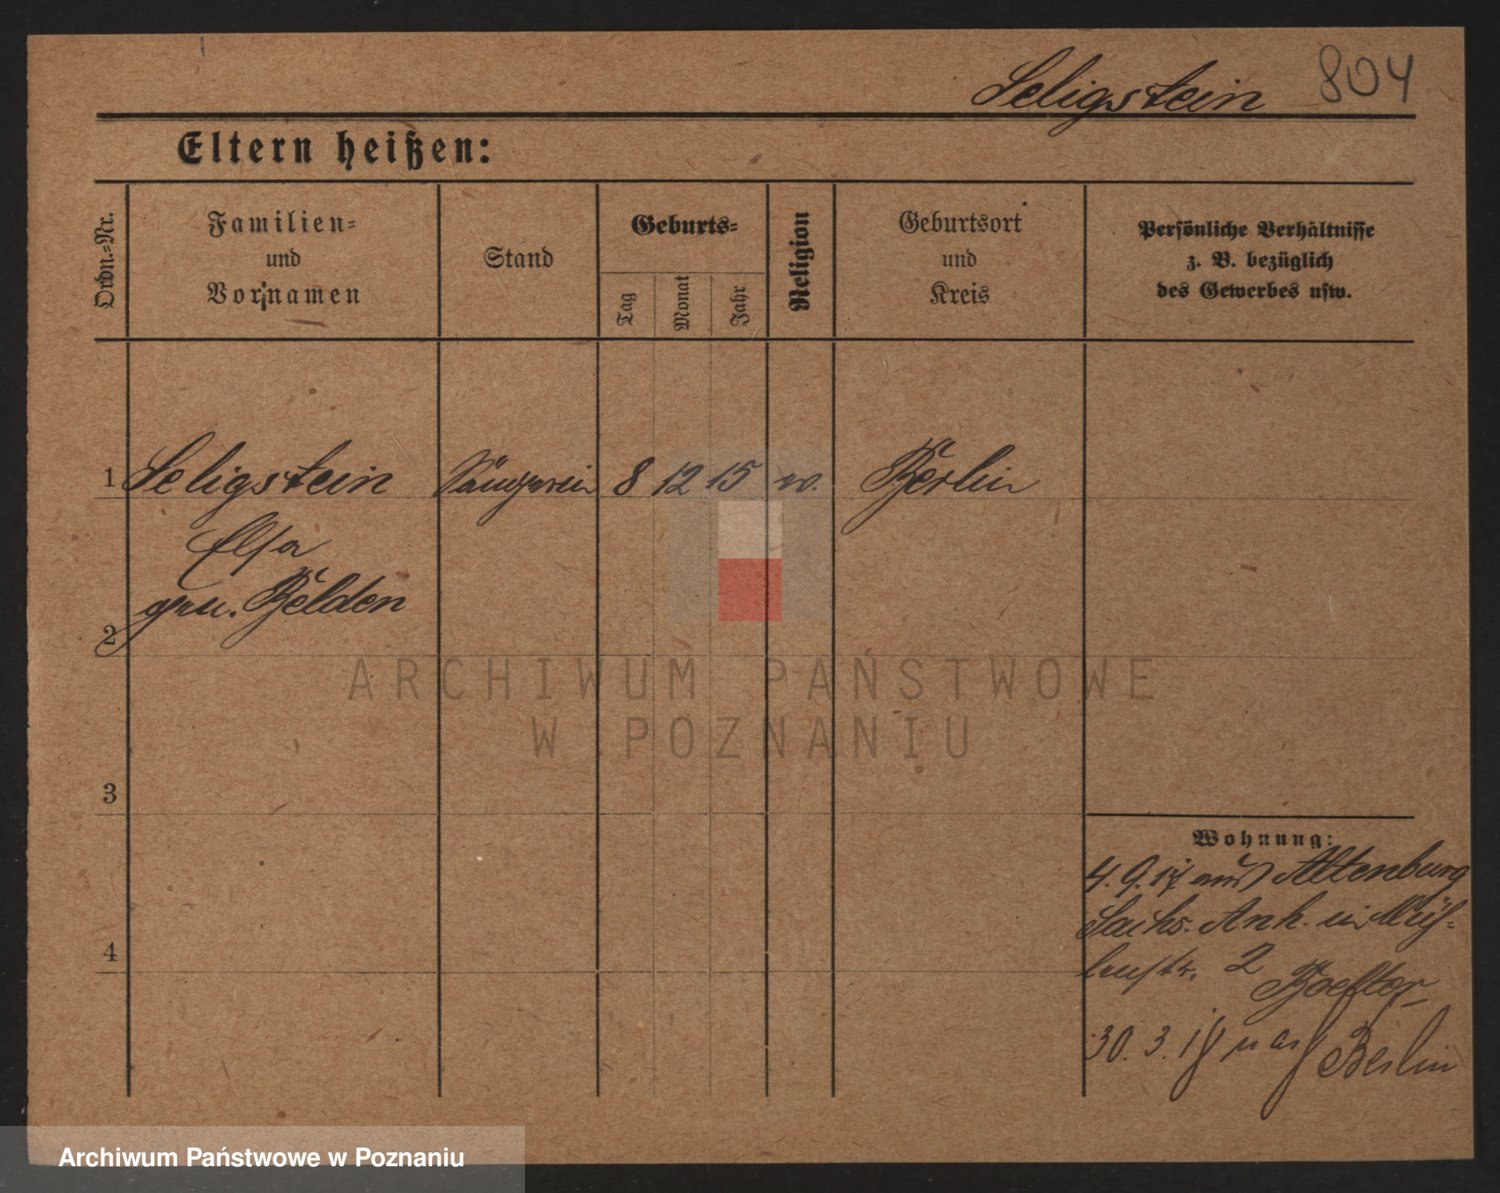 Seligstein 804
Eltern heißen:
Ordn.-Nr.
Familien-
und
Vornamen
Stand
Geburts-
Tag
Monat
Jahr
Religion
Geburtsort
und
Kreis
Persönliche Verhältnisse
z. B. bezüglich
des Gewerbes usw.
1 Seligstein Sängerin 8 12 15 Berlin
Elsa
gen. Belden
2
3
4
Wohnung:
4. 9. 17 aus Altenburg
Sachs. Anh. in Müh-
lenstr. 2
30. 3. 18 nach Berlin
ARCHIWUM PAŃSTWOWE
W POZNANIU
Archiwum Państwowe w Poznaniu